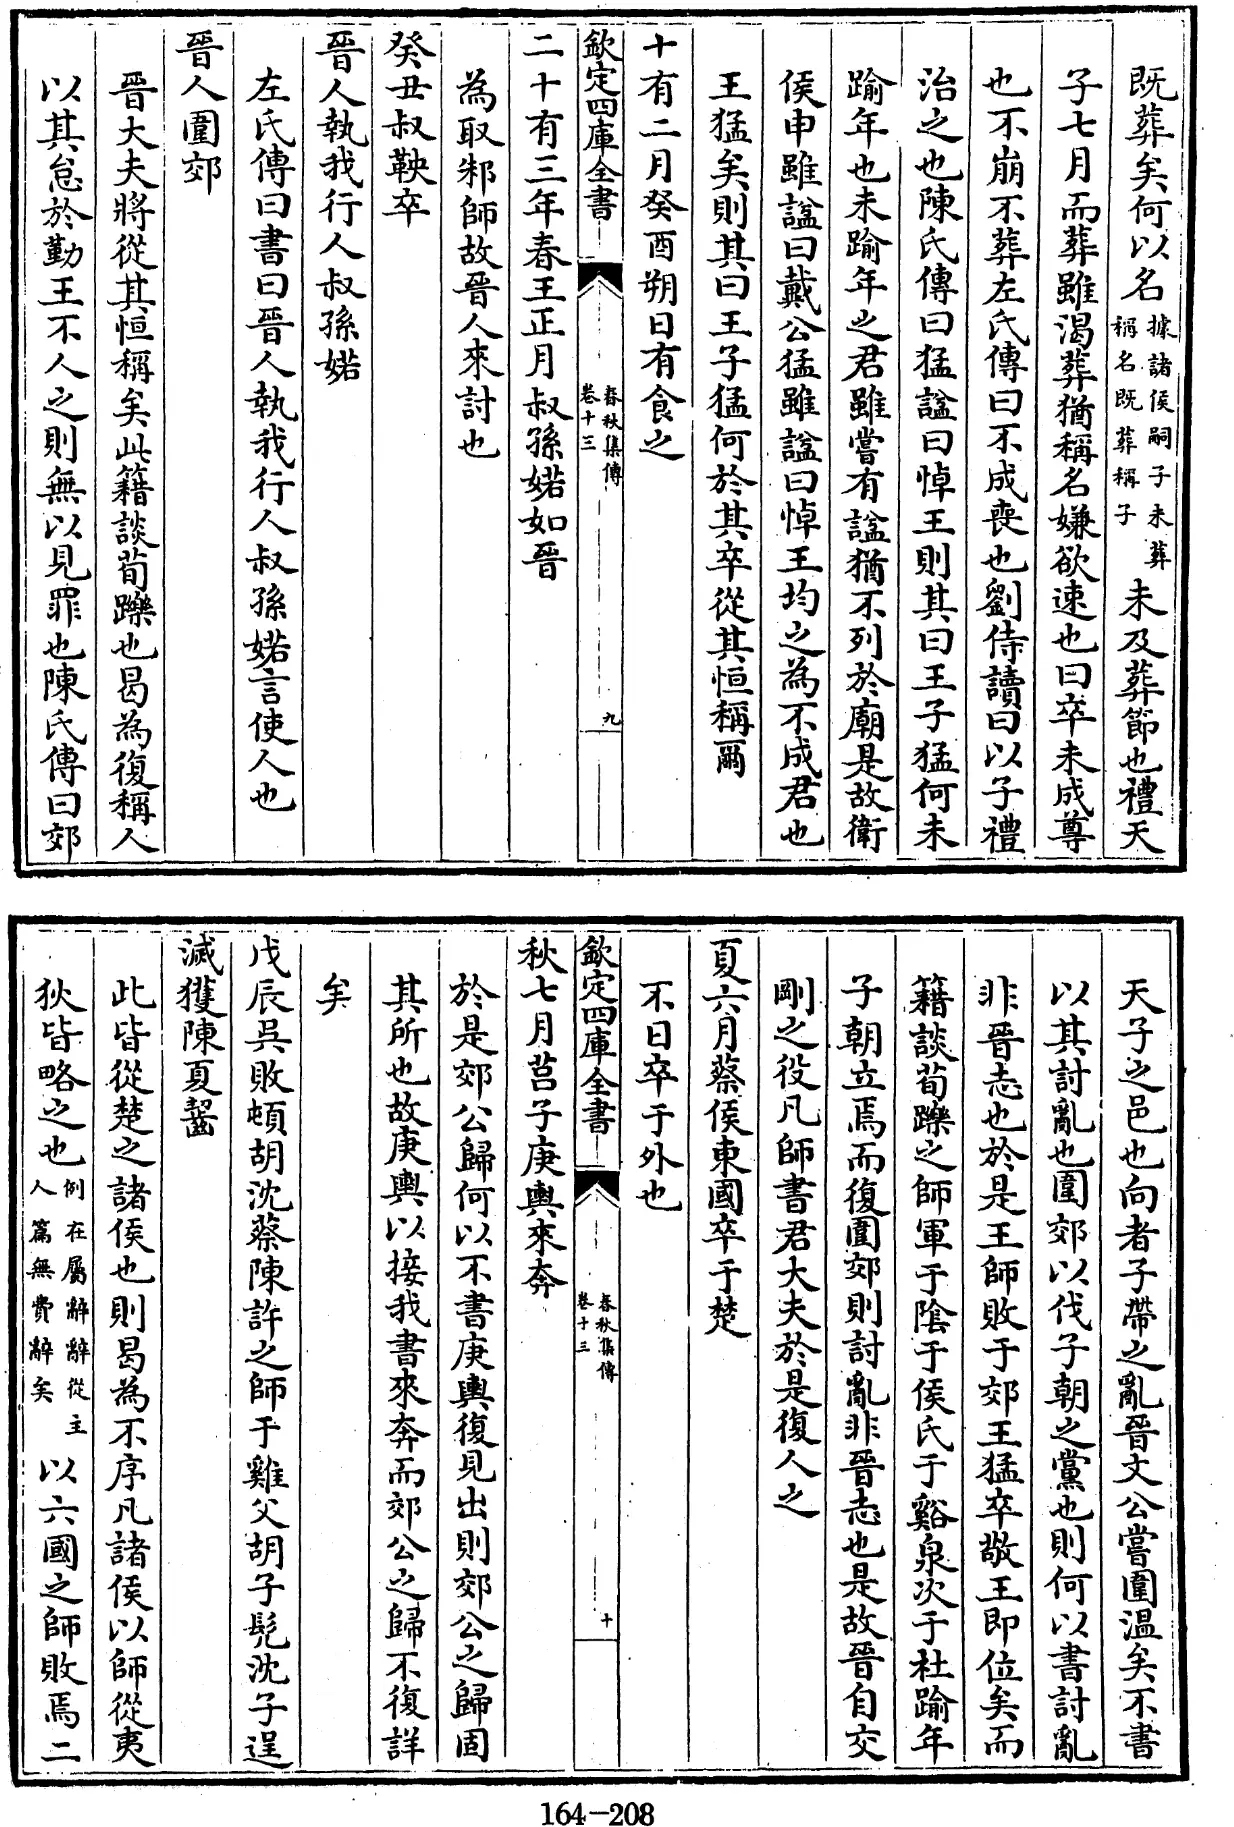 既葬矣何以名據諸侯嗣子未葬稱名既葬稱子未及葬節也禮天
子七月而葬雖渴葬猶稱名嫌欲速也曰卒未成尊
也不崩不葬左氏傳曰不成喪也劉侍讀曰以子禮
治之也陳氏傳曰猛諡曰悼王則其曰王子猛何未
踰年也未踰年之君雖嘗有諡猶不列於廟是故衛
侯申雖諡曰戴公猛雖諡曰悼王均之為不成君也
王猛矣則其曰王子猛何於其卒從其恒稱爾
十有二月癸酉朔日有食之
欽定四庫全書
春秋集傳
卷十三
九
二十有三年春王正月叔孫婼如晉
為取邾師故晉人來討也
癸丑叔鞅卒
晉人執我行人叔孫婼
左氏傳曰書曰晉人執我行人叔孫婼言使人也
晉人圍郊
晉大夫將從其恒稱矣此籍談荀躒也曷為復稱人
以其怠於勤王不人之則無以見罪也陳氏傳曰郊
天子之邑也向者子帶之亂晉文公嘗圍溫矣不書
以其討亂也圍郊以伐子朝之黨也則何以書討亂
非晉志也於是王師敗于郊王猛卒敬王即位矣而
籍談荀躒之師軍于陰于侯氏于谿泉次于杜踰年
子朝立焉而復圍郊則討亂非晉志也是故晉自交
剛之役凡師書君大夫於是復人之
夏六月蔡侯東國卒于楚
不日卒于外也
欽定四庫全書
春秋集傳
卷十三
十
秋七月莒子庚輿來奔
於是郊公歸何以不書庚輿復見出則郊公之歸固
其所也故庚輿以接我書來奔而郊公之歸不復詳
矣
戊辰吳敗頓胡沈蔡陳許之師于雞父胡子髡沈子逞
滅獲陳夏齧
此皆從楚之諸侯也則曷為不序凡諸侯以師從夷
狄皆略之也例在屬辭辭從主人篇無費辭矣以六國之師敗焉二
164-208